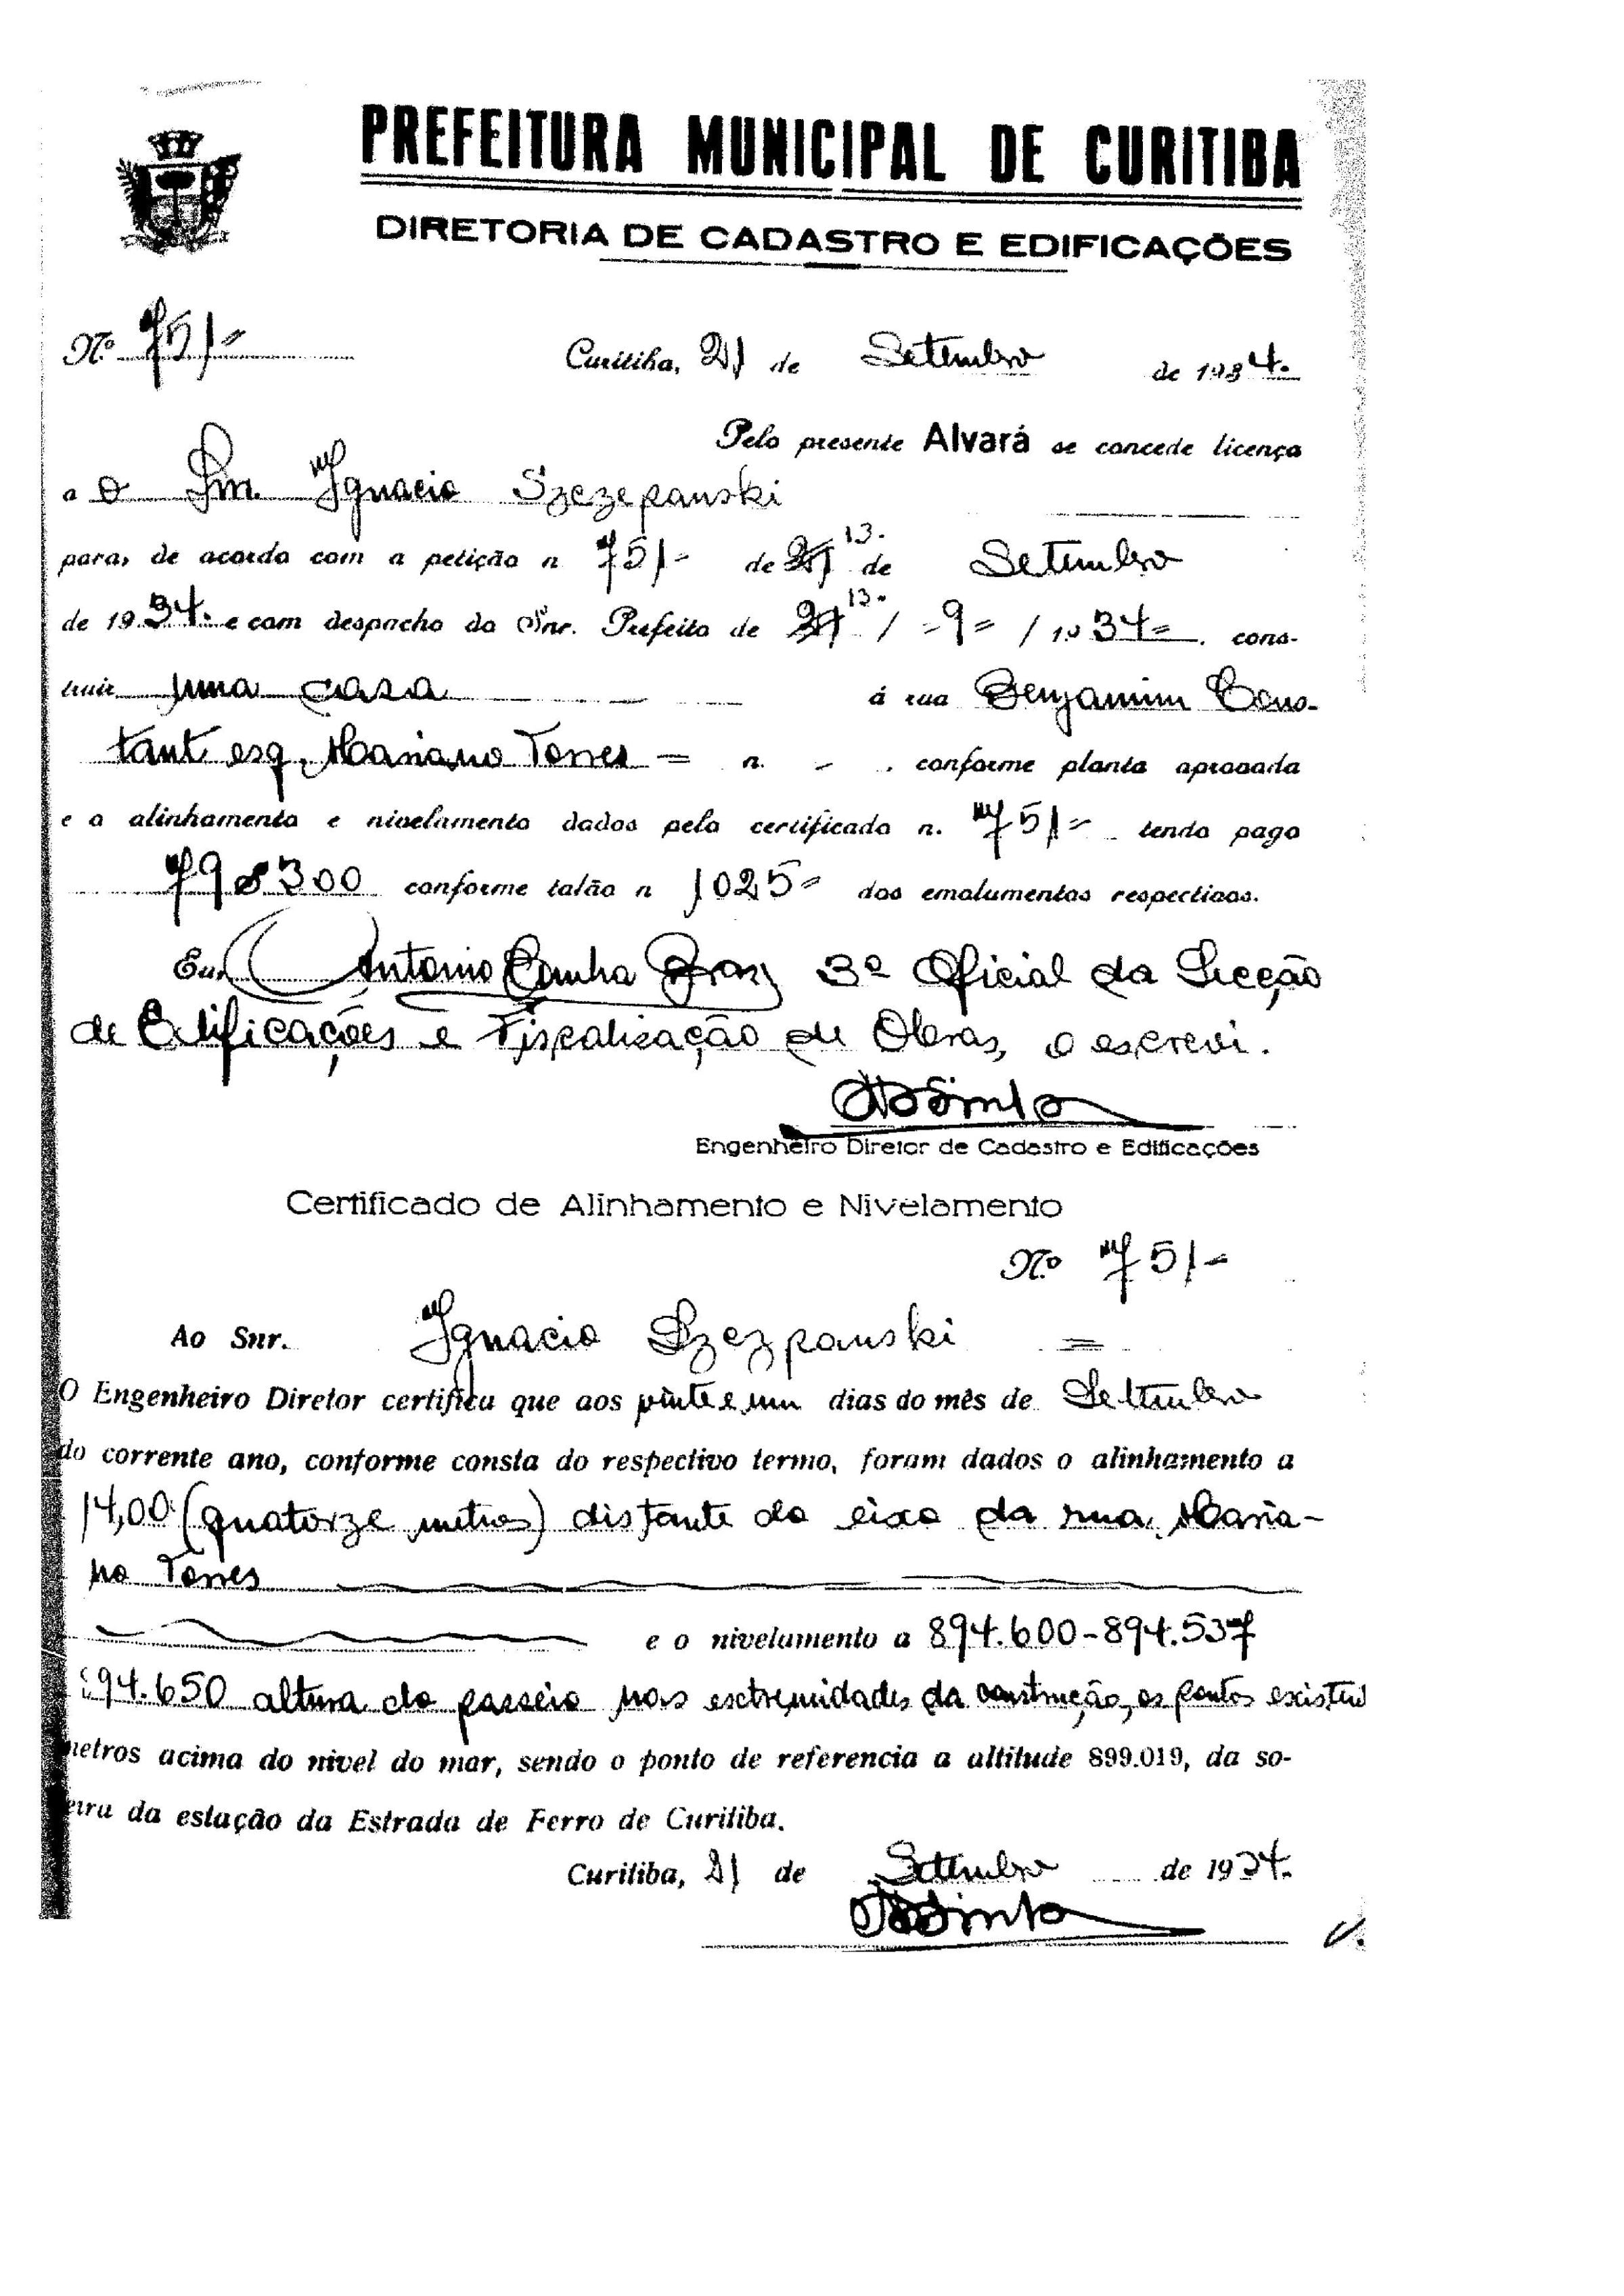 PREFEITURA MUNICIPAL DE CURITIBA
DIRETORIA DE CADASTRO E EDIFICAÇÕES
N.º 751=
Curitiba, 21 de Setembro de 1934.
Pelo presente Alvará se concede licença
a o Snr. Ignacio Szezepanski
para, de acordo com a petição n 751= de 21 13. de Setembro
de 1934. e com despacho do Snr. Prefeito de 21 13. / =9= / 1934=. cons-
truir uma casa á rua Benjamim Cons-
tant esq. Mariano Torres = n. - . conforme planta aprovada
e o alinhamento e nivelamento dados pelo certificado n. 751= tendo pago
79$300 conforme talão n 1025= dos emolumentos respectivos.
Eu, Antonio Cunha Braz 3º Oficial da Secção
de Edificações e Fiscalização de Obras, o escrevi.
Engenheiro Diretor de Cadastro e Edificações
Certificado de Alinhamento e Nivelamento
N.º 751=
Ao Snr. Ignacio Szezpanski =
O Engenheiro Diretor certifica que aos vinte e um dias do mês de Setembro
do corrente ano, conforme consta do respectivo termo, foram dados o alinhamento a
14,00 (quatorze metros) distante do eixo da rua Maria-
no Torres
e o nivelamento a 894.600-894.537
94.650 altura do passeio nas extremidades da construção, os pontos existen
metros acima do nivel do mar, sendo o ponto de referencia a altitude 899.019, da so-
eira da estação da Estrada de Ferro de Curitiba.
Curitiba, 21 de Setembro de 1934.